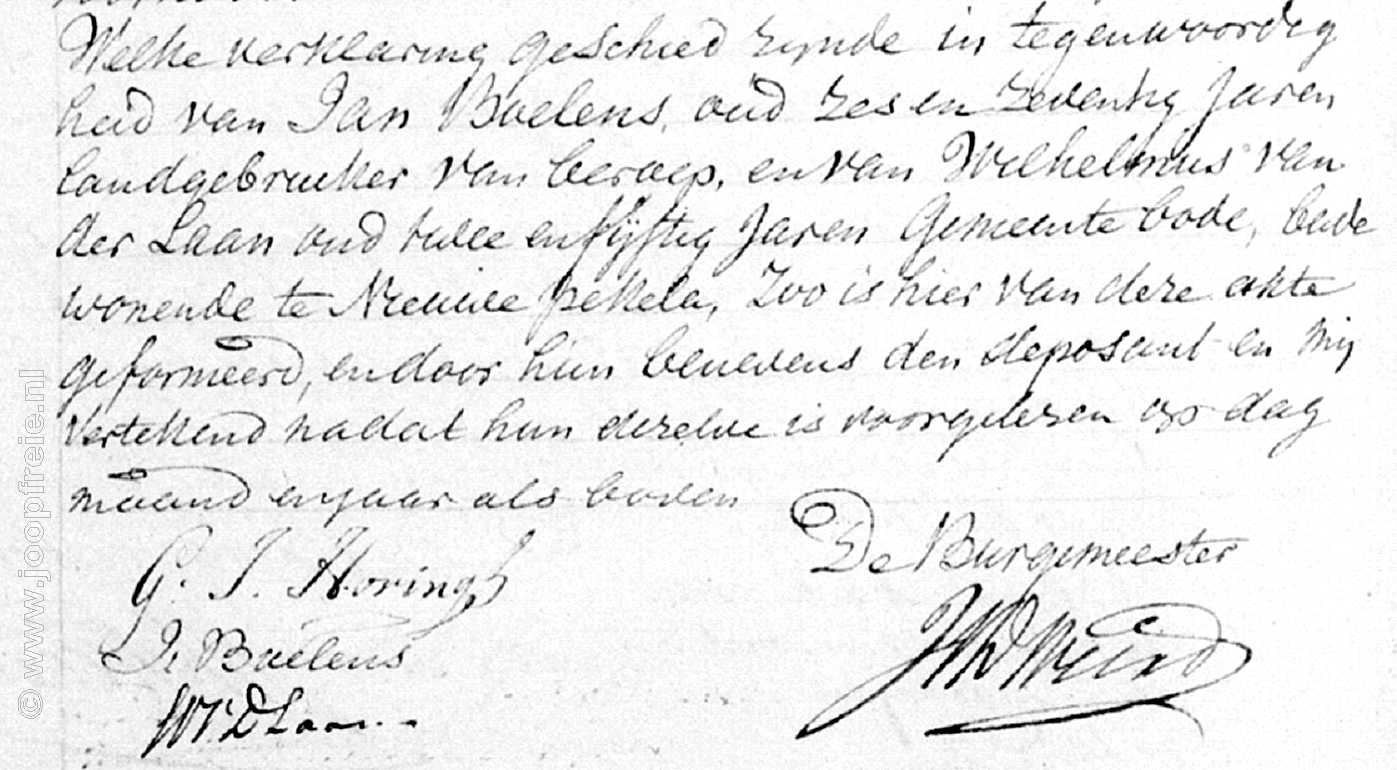 Welke verklaring geschied zynde in tegenwoordig
heid van Jan Boelens, oud zes en zeventig Jaren
landgebruiker van beroep, en van Wilhelmus van
der Laan oud twee en fijftig Jaren Gemeente bode, beide
wonende te Nieuwe pekela, Zoo is hier van deze akte
geformeerd, en door hun benevens den deposant en mij
vertekend nadat hun dezelve is voorgelezen op dag
maand en jaar als boven
De Burgemeester
G. J. Horingh
J. Boelens
WVDLaan
© www.joopfreie.nl